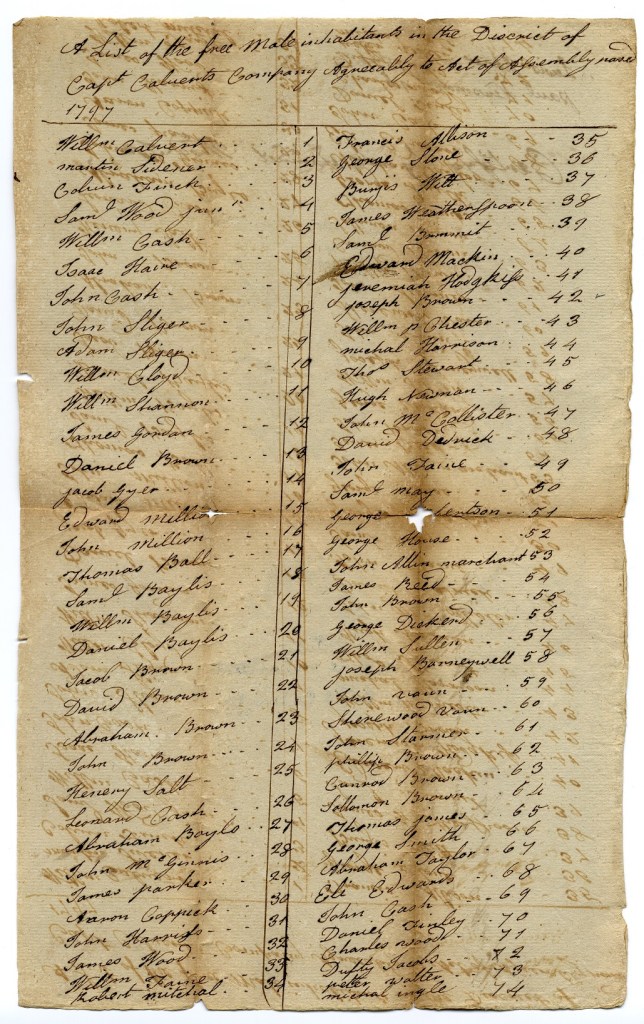 A List of the free Male inhabitants in the District of
Capt Calverts Company Agreeably to Act of Assembly
1797
Willm Calvert 1
martin Sidener 2
Colvin Finch 3
Saml Wood junr 4
Willm Cash 5
Isaac Haire 6
John Cash 7
John Sliger 8
Adam Sliger 9
Willm Cloyd 10
Willm Shannon 11
James Gordan 12
Daniel Brown 13
Jacob Gyer 14
Edward Million 15
John Million 16
Thomas Ball 17
Saml Baylis 18
Willm Baylis 19
Daniel Baylis 20
Jacob Brown 21
David Brown 22
Abraham Brown 23
John Brown 24
Henery Salt 25
Leonard Cash 26
Abraham Baylis 27
John McGinnis 28
James parker 29
Aaron Coppick 30
John Harriss 31
James Wood 32
Willm Faine 33
Robert mitchal 34
Francis Allison 35
George Stone 36
Burgis Witt 37
James Weatherspoon 38
Saml Brummit 39
Edward Mackin 40
Jeremiah Hodgkiss 41
Joseph Brown 42
Willm p Chester 43
michal Harrison 44
Thos Stewart 45
Hugh Newman 46
John McCollister 47
David Dedrick 48
John Faine 49
Saml may 50
George 51
George House 52
John Allin marchant 53
James Reed 54
John Brown 55
George Diskerd 56
Willm Sullen 57
Joseph Barneywell 58
John vaun 59
Sherewood vaun 60
John Starmer 61
phillip Brown 62
Cunrod Brown 63
Sollomon Brown 64
Thomas James 65
George Smith 66
Abraham Taylor 67
Eli Edwards 68
John Cash 69
Daniel Finley 70
Charles wood 71
Dutty Jacobs 72
peter walter 73
michal ingle 74